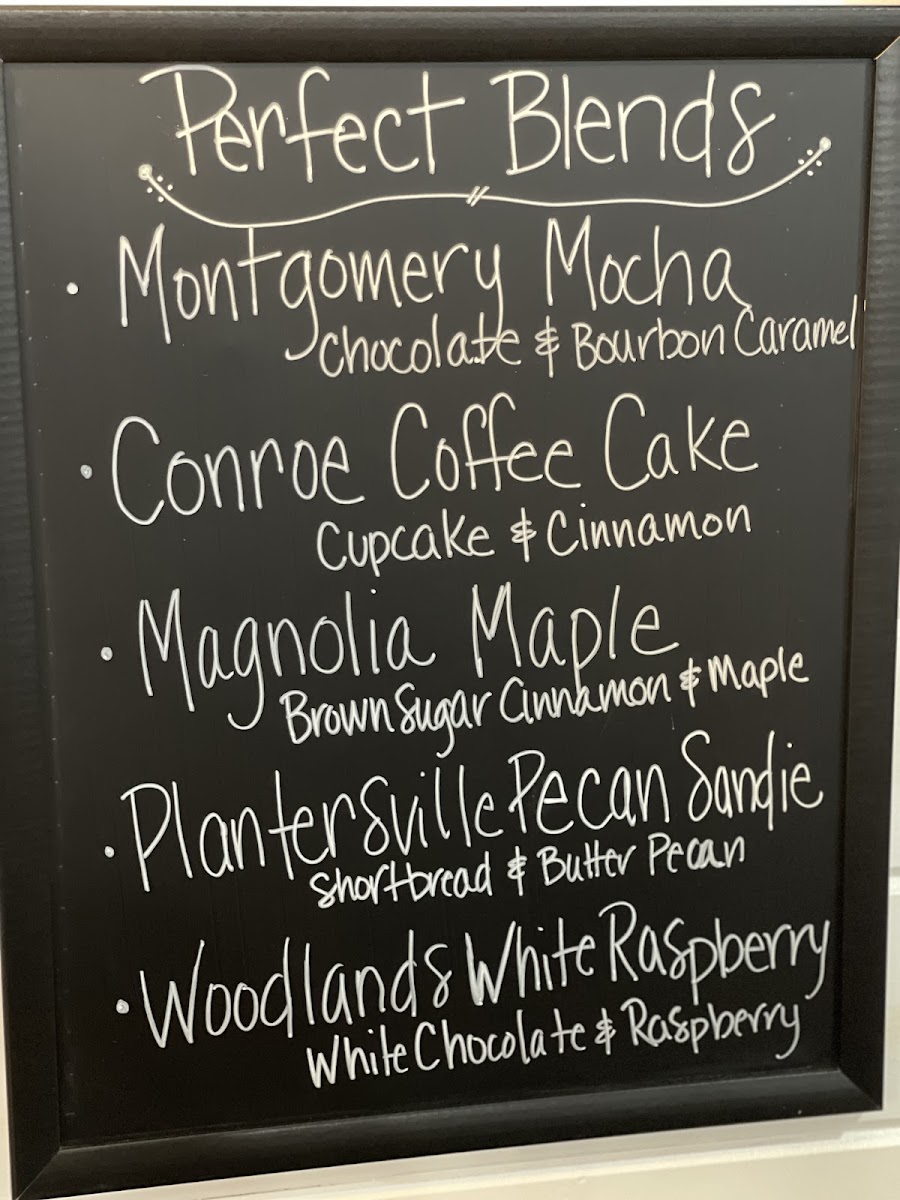 Perfect Blends
• Montgomery Mocha
Chocolate & Bourbon Caramel
• Conroe Coffee Cake
Cupcake & Cinnamon
• Magnolia Maple
Brown Sugar Cinnamon & Maple
• Plantersville Pecan Sandie
Shortbread & Butter Pecan
• Woodlands White Raspberry
White Chocolate & Raspberry